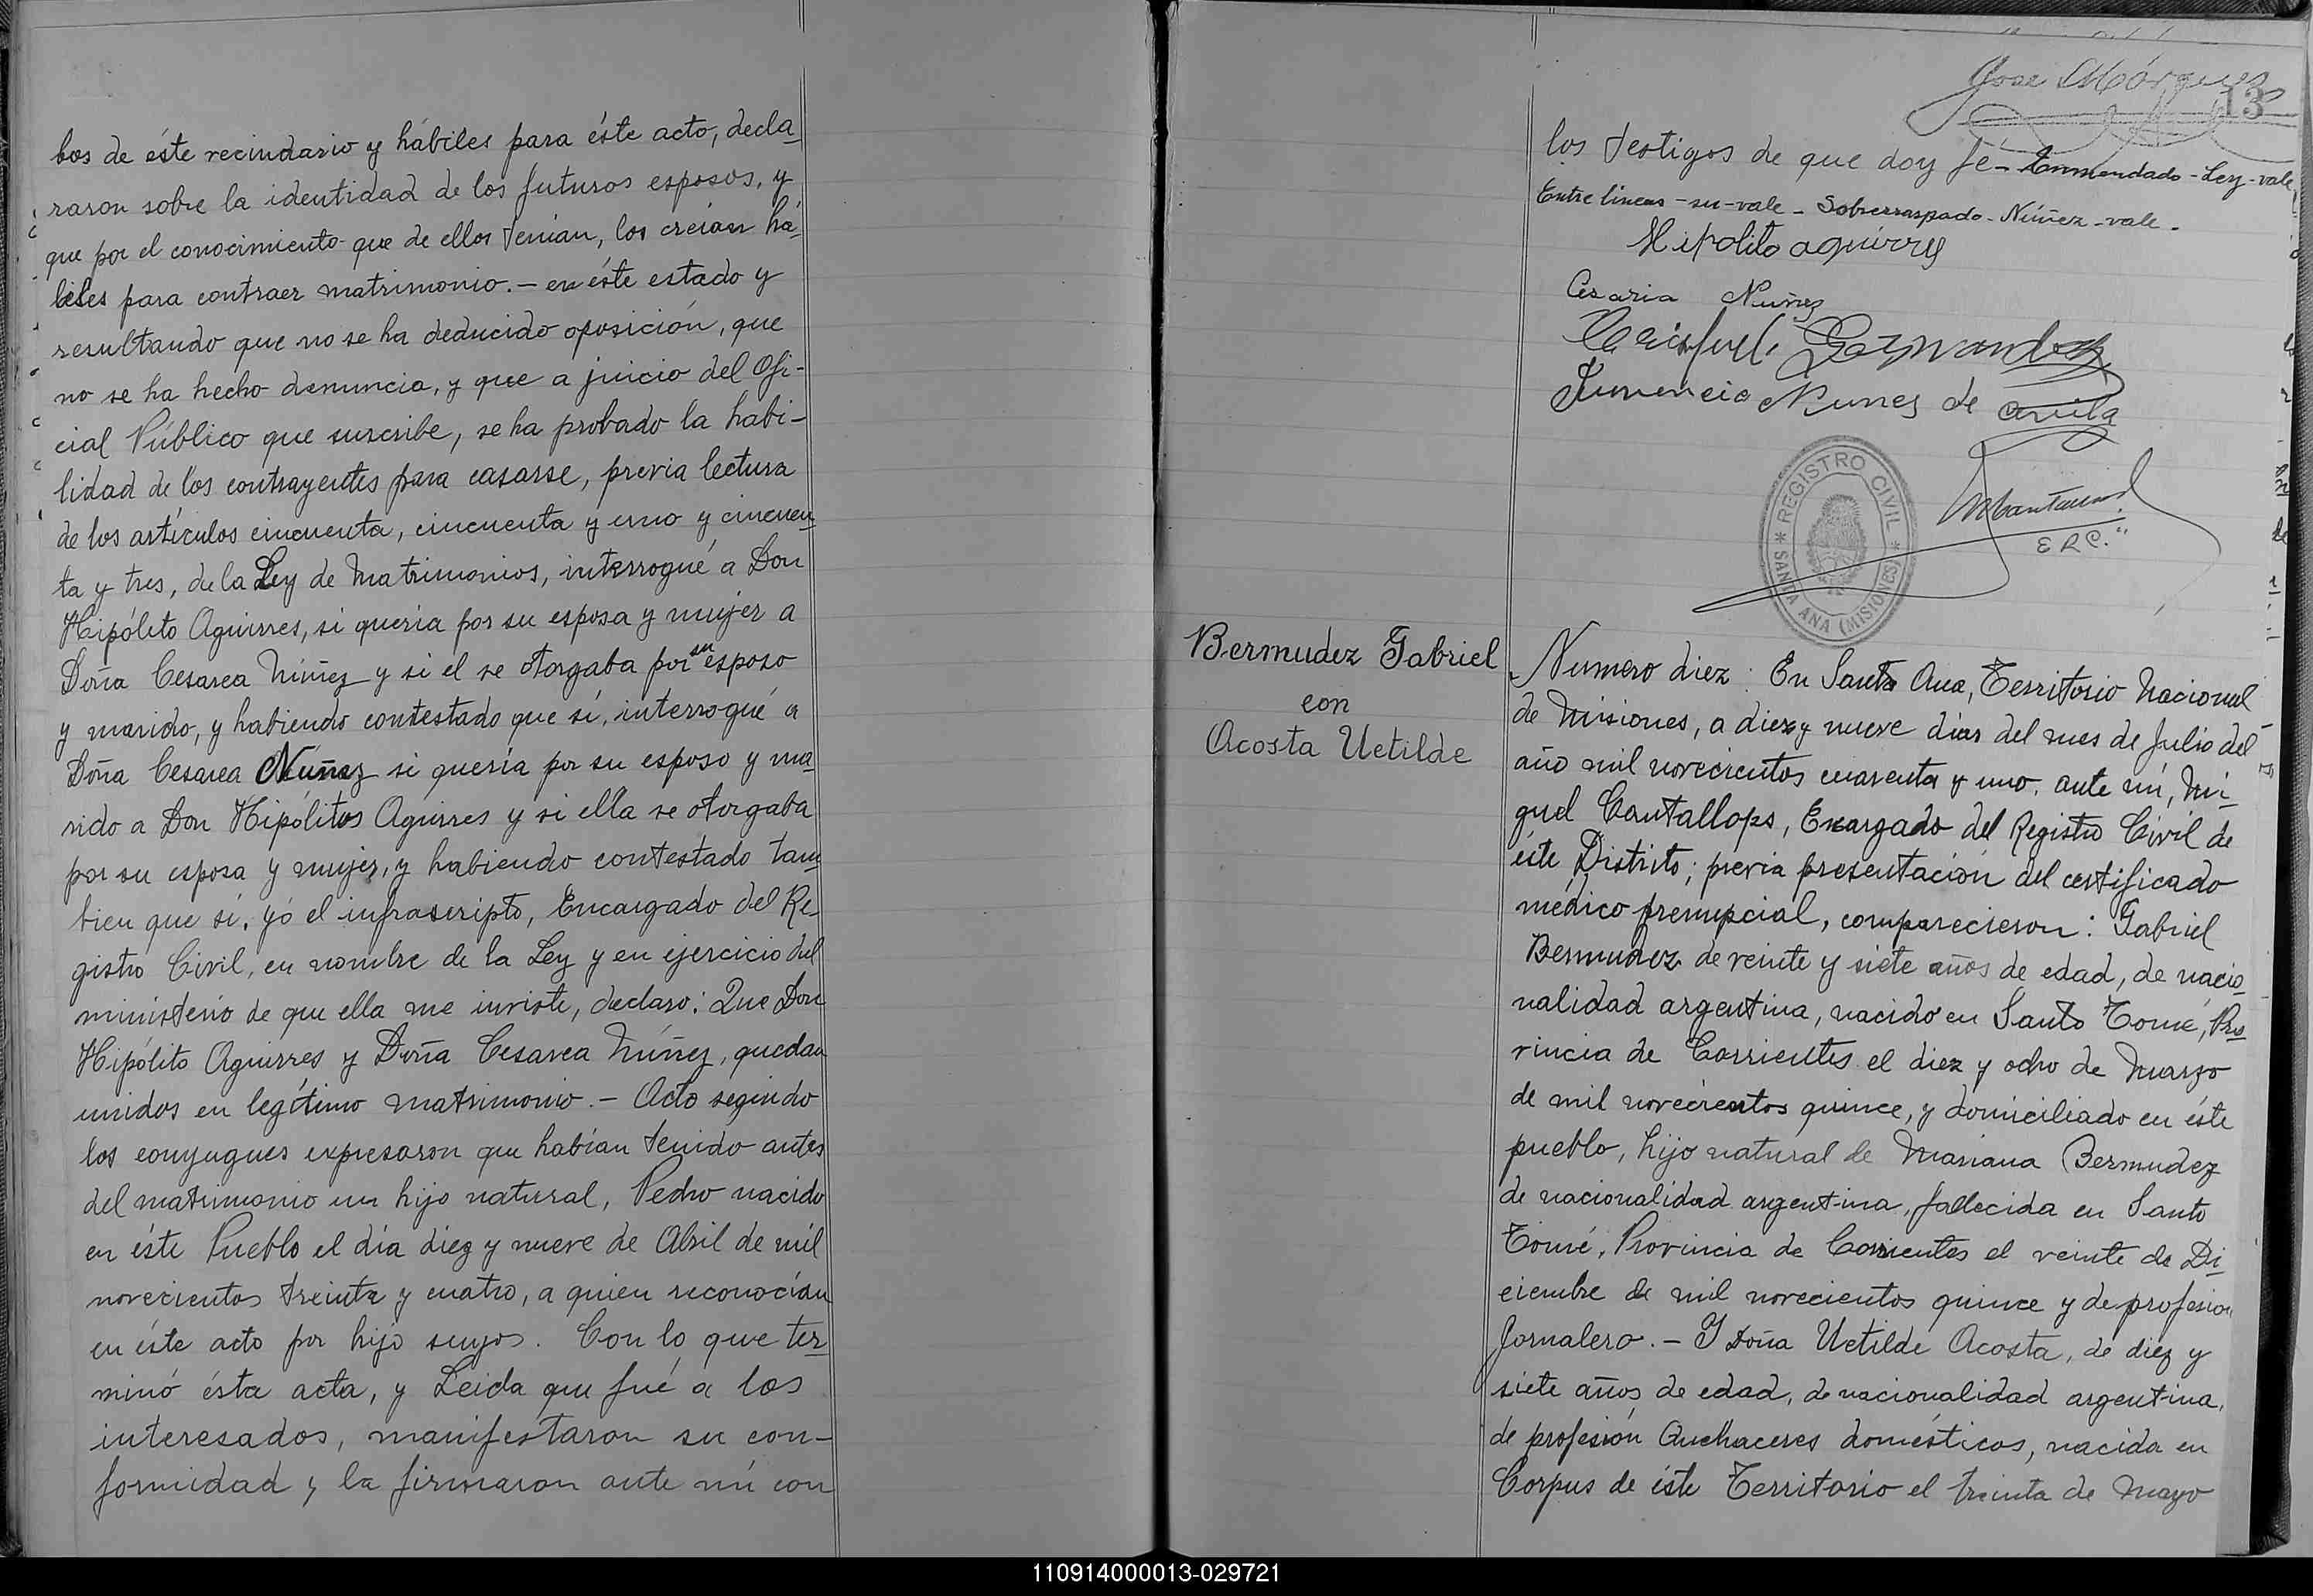 bos de éste vecindario y hábiles para éste acto, decla_
raron sobre la identidad de los futuros esposos, y
que por el conocimiento que de ellos tenían, los creían há_
biles para contraer matrimonio. — en éste estado y
resultando que no se ha deducido oposición, que
no se ha hecho denuncia, y que a juicio del Ofi-
cial Público que suscribe, se ha probado la habi-
lidad de los contrayentes para casarse, previa lectura
de los artículos cincuenta, cincuenta y uno y cincuen_
ta y tres, de la Ley de Matrimonios, interrogué a Don
Hipólito Aguirres, si quería por su esposa y mujer a
Doña Cesarea Núñez y si el se otorgaba por su esposo
y marido, y habiendo contestado que sí, interrogué a
Doña Cesarea Núñez si quería por su esposo y ma_
rido a Don Hipólitos Aguirres y si ella se otorgaba
por su esposa y mujer, y habiendo contestado tam_
bien que sí, yó el infrascripto, Encargado del Re_
gistro Civil, en nombre de la Ley y en ejercicio del
ministerio de que ella me inviste, declaro: Que Don
Hipólito Aguirres y Doña Cesarea Núñez, quedan
unidos en legítimo matrimonio. — Acto segundo
los conyugues expresaron que habían tenido antes
del matrimonio un hijo natural, Pedro nacido
en éste Pueblo el día diez y nueve de Abril de mil
novecientos treinta y cuatro, a quien reconocían
en éste acto por hijo suyos. Con lo que ter_
minó ésta acta, y Leida que fué a los
interesados, manifestaron su con-
formidad y la firmaron ante mí con
Jose Márques
13
los testigos de que doy fé - Enmendado - Ley - vale
Entre lineas - su - vale - Sobrerraspado - Núñez - vale -
Hipolito aguirres
Cesaria Nuñez
Juvencio Nunes de avila
REGISTRO CIVIL
* SANTA ANA (MISIONES) *
E R C.
Bermudez Gabriel
con
Acosta Uetilde
Numero diez: En Santa Ana, Territorio Nacional
de Misiones, a diez y nueve dias del mes de Julio del
año mil novecientos cuarenta y uno, ante mí, Mi_
guel Cantallops, Encargado del Registro Civil de
éste Distrito; previa presentación del certificado
médico prenupcial, comparecieron: Gabriel
Bermudez de veinte y siete años de edad, de nacio_
nalidad argentina, nacido en Santo Tomé, Pro_
vincia de Corrientes el diez y ocho de Marzo
de mil novecientos quince, y domiciliado en éste
pueblo, hijo natural de Mariana Bermudez
de nacionalidad argentina, fallecida en Santo
Tomé, Provincia de Corrientes el veinte de Di_
ciembre de mil novecientos quince y de profesion
Jornalero. — Y Doña Uetilde Acosta, de diez y
siete años de edad, de nacionalidad argentina,
de profesión Quehaceres domésticos, nacida en
Corpus de éste Territorio el treinta de Mayo
110914000013-029721